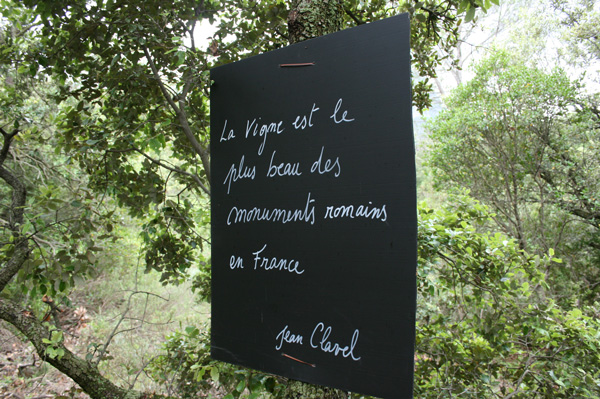 La Vigne est le
plus beau des
monuments romains
en France
Jean Clavel